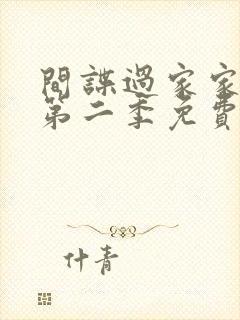 間諜過家家
第二季免費
什青